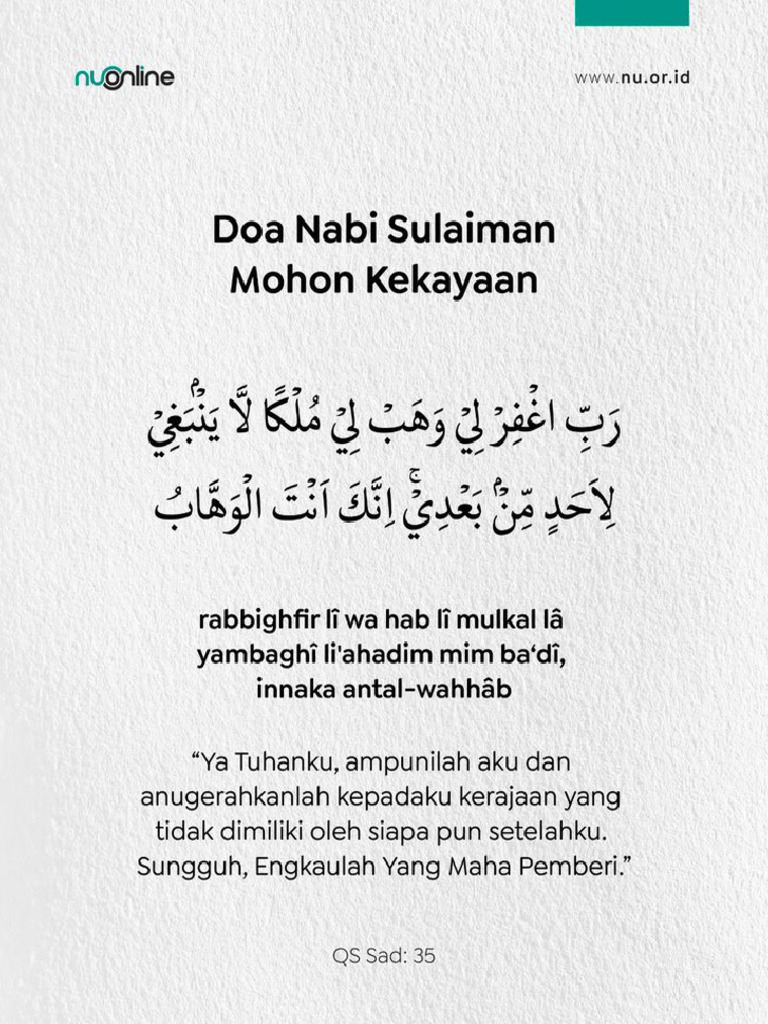 nuonline
www.nu.or.id
Doa Nabi Sulaiman
Mohon Kekayaan
رَبِّ اغْفِرْ لِيْ وَهَبْ لِيْ مُلْكًا لَّا يَنْۢبَغِيْ
لِاَحَدٍ مِّنْۢ بَعْدِيْۚ اِنَّكَ اَنْتَ الْوَهَّابُ
rabbighfir lî wa hab lî mulkal lâ
yambaghî li'ahadim mim ba‘dî,
innaka antal-wahhâb
“Ya Tuhanku, ampunilah aku dan
anugerahkanlah kepadaku kerajaan yang
tidak dimiliki oleh siapa pun setelahku.
Sungguh, Engkaulah Yang Maha Pemberi.”
QS Sad: 35